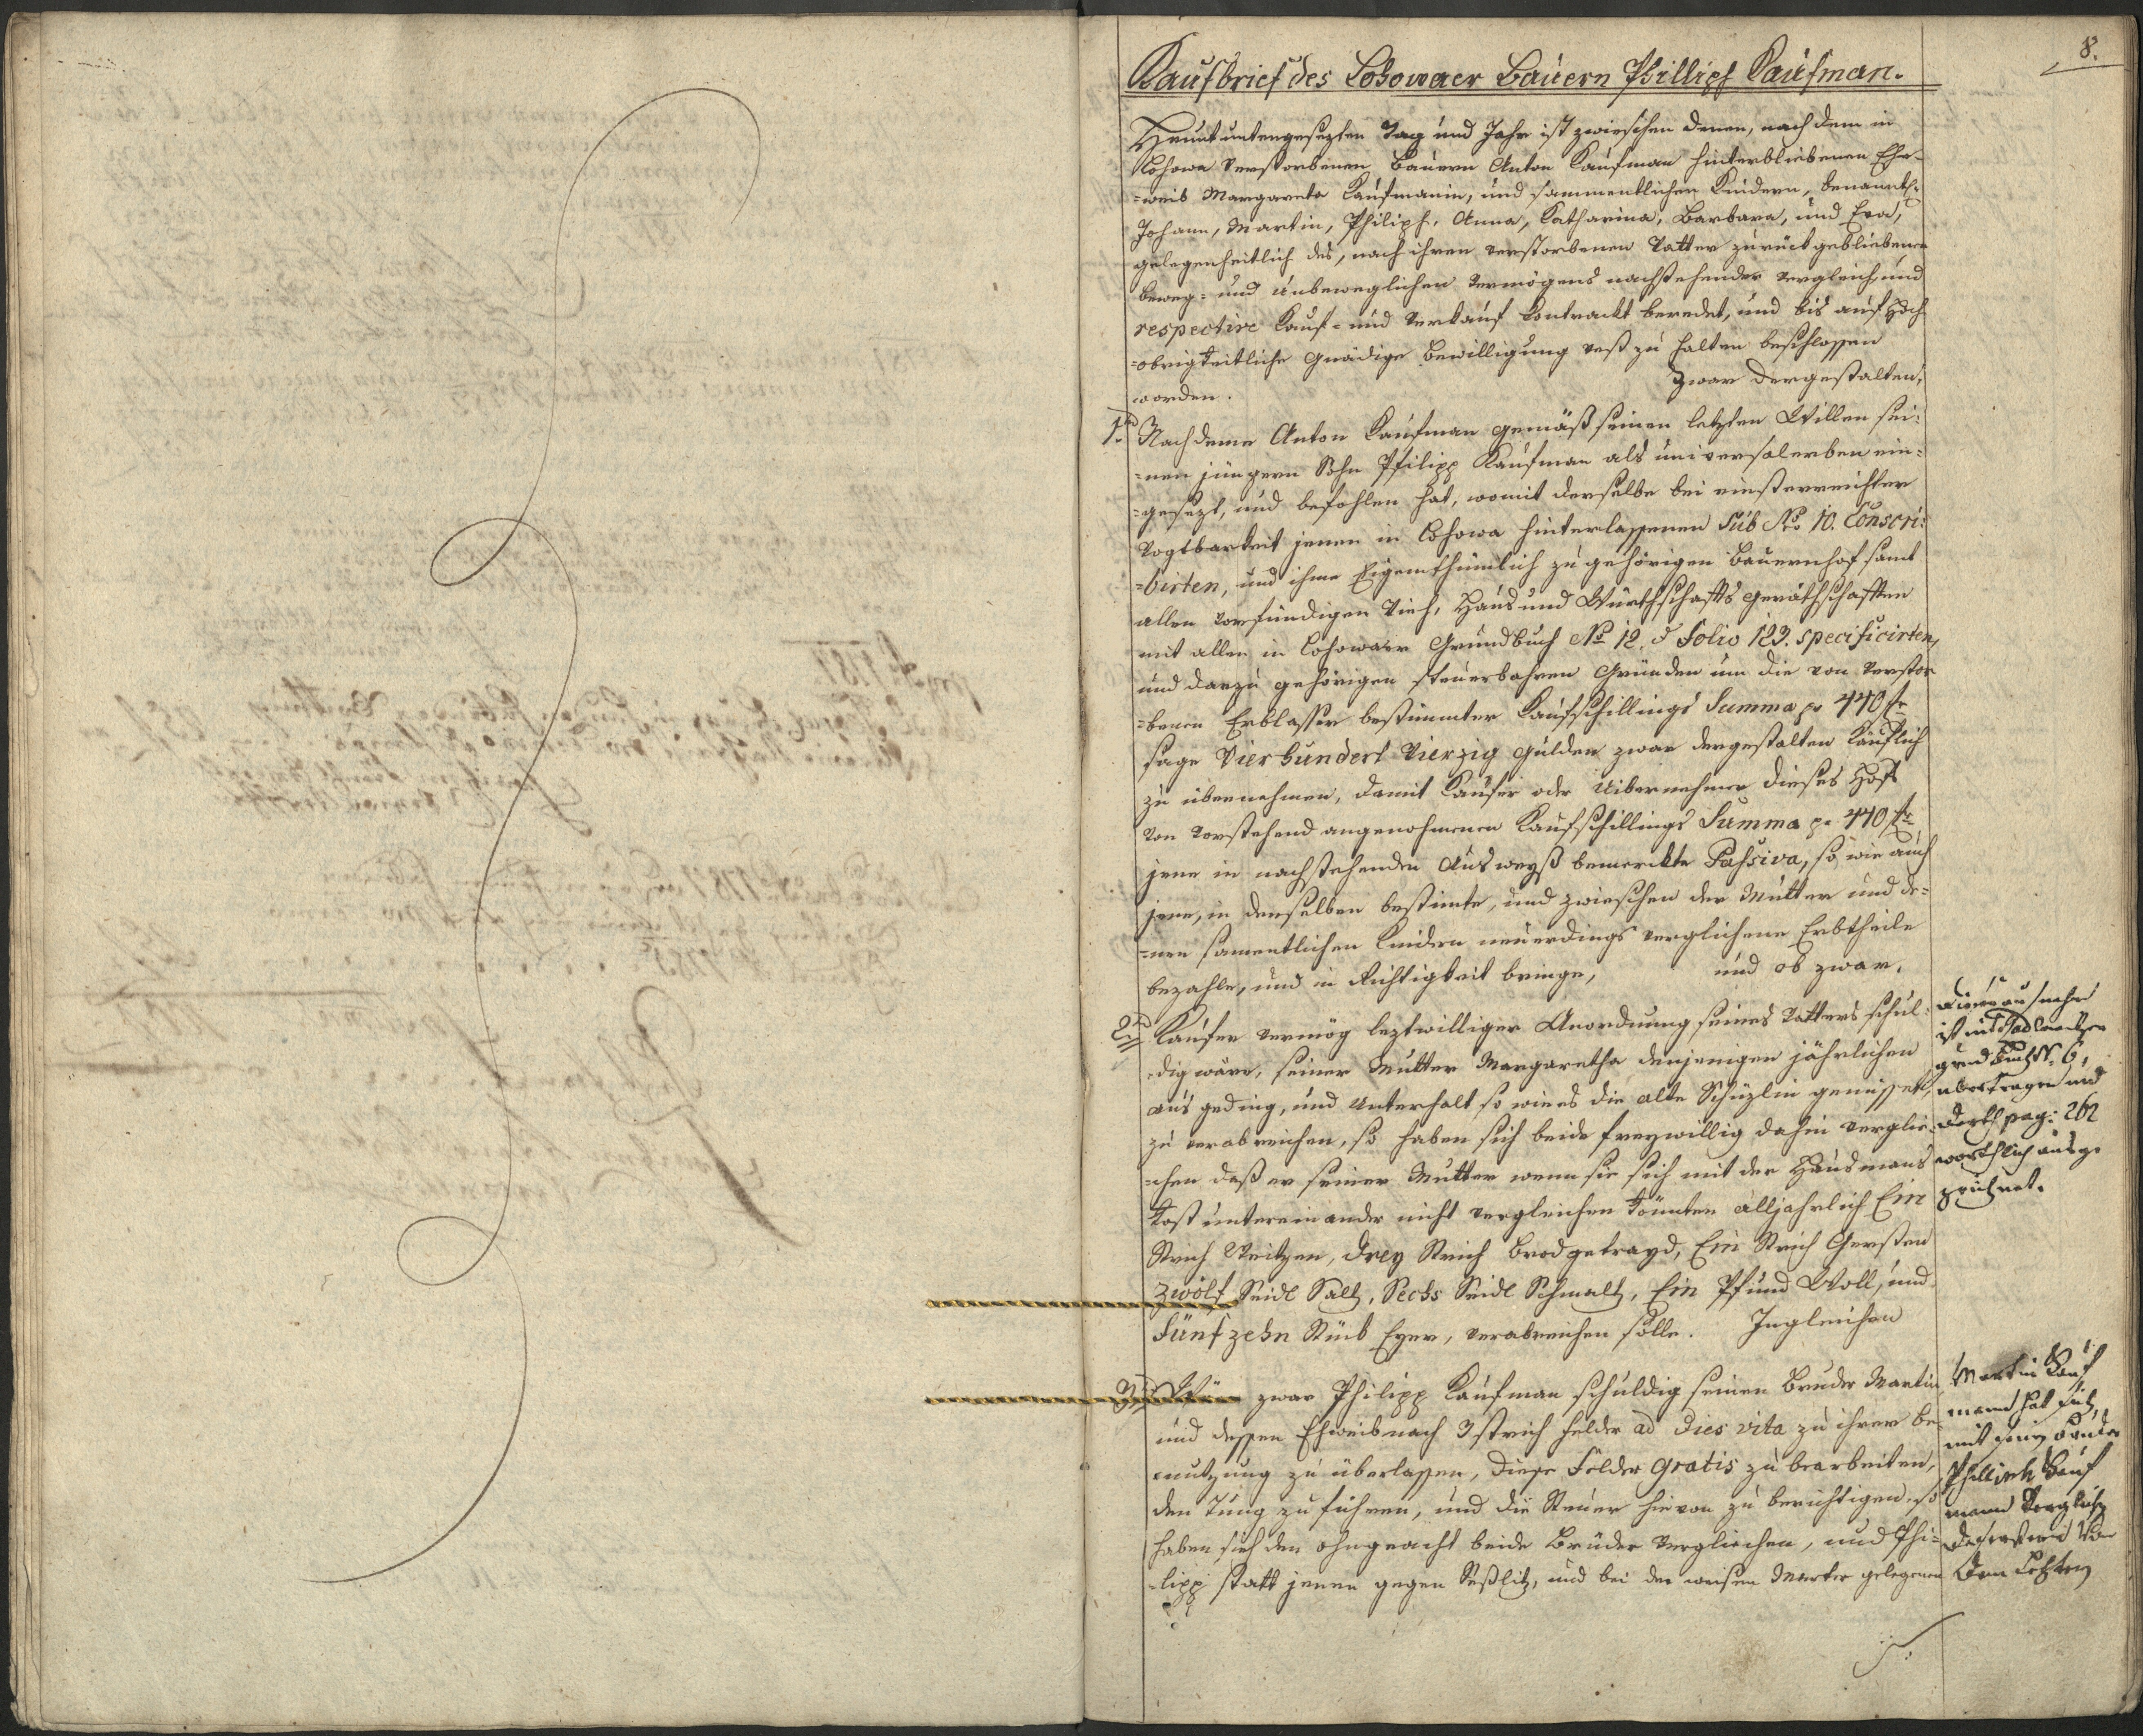 8.
Kaufbrief des Lohowaer Bauern Phillipf Kaufman.
Heunt untengesezten Tag und Jahr ist zwieschen denen, nach dem in
Lohowa verstorbenen Bauern Anton Kaufman hinterbliebenen Ehe-
=weib Margareta Kaufmanin, und sammentlichen Kindern, benanntl.
Johann, Martin, Philiph, Anna, Katharina, Barbara, und Eva,
gelegenheitlich des, nach ihren verstorbenen Vatter zurückgebliebenen
beweg= und unbeweglichen Vermögens nachstehender Vergleich und
respective Kauf= und Verkauf Contrackt beredet, und bis auf Hoch
=obrigkeitliche gnädige Bewilligung vest zu halten beschlossen
worden. Zwar dergestalten,
1tens Nachdeme Anton Kaufman gemäß seinen letzten Willen sei=
=nen jüngern Sohn Philipp Kaufman als universalerben ein=
=gesezt, und befohlen hat, womit derselbe bei einst erreichter
Vogtbarkeit jenen in Lohowa hinterlassenen Sub No 10. Conscri=
=birten, und ihme Eigenthümlich zu gehörigen Bauernhof samt
allen vorfündigen Vieh, Haus und Würthschafts geräthschafften
mit allen in Lohowaer Grundbuch No 12. & Folio 123. specificirten,
und darzu gehörigen steuerbahren Gründen um die von Verstor
=benen Erblasser bestimmter Kaufschillings Summa pr 440 fr
sage Vierhundert Vierzig Gulden zwar dergestalten Käuflich
zu übernehmen, damit Kaufer oder Uibernehmer dieses Hofs
von vorstehend angenohmenen Kaufschillings Summa pr 440 fr.
jene in nachstehenden Ausweyß bemerckte Passiva, so wie auch
jene, in denselben bestimte, und zwieschen der Mutter und de=
=nen samentlichen Kindern neuerdings verglichene Erbtheile
bezahle, und in Richtigkeit bringe, und ob zwar.
2tens Kaufer vermög leztwilliger Anordnung seines Vatters schul=
=dig wäre, seiner Mutter Margaretha denjenigen jährlichen
ausgeding, und Unterhalt so wie es die alte Schüzlin genüsset,
zu verabreichen, so haben sich beide freywillig dahin verglie=
=chen daß er seiner Mutter wenn sie sich mit der Hausmans
Kost untereinander nicht vergleichen könnten alljahrlich Ein
Strich Weitzen, Drey Strich Brodgetrayd, Ein Strich Gersten
Zwölf Seidl Saltz, Sechs Seidl Schmaltz, Ein Pfund Woll, und
Fünfzehn Stück Eyer, verabreichen solle. Ingleichen
3tens Wäre zwar Philipp Kaufman schuldig seinen Bruder Martin
und dessen Eheweib nach 3 strich Felder ad Dies vita zu ihrer be=
=nutzung zu überlassen, Diese Felder gratis zu bearbeiten,
den Tung zu führen, und die Steuer hievon zu berichtigen, so
haben sich den ohngeacht beide Brüder Vergliechen, und Phi=
=lipp statt jenen gegen Seßlitz, und bei der weisen Marter gelegenen
ist ins
grund Buch Nr. 6,
übertragen und
Dorth pag: 262
worthlich ausge
zeichnet.
Martin Kauf
mann hat sich
mit seinen Bruder
Phillieh Kauf
mann Verglich
von
dem Letzten